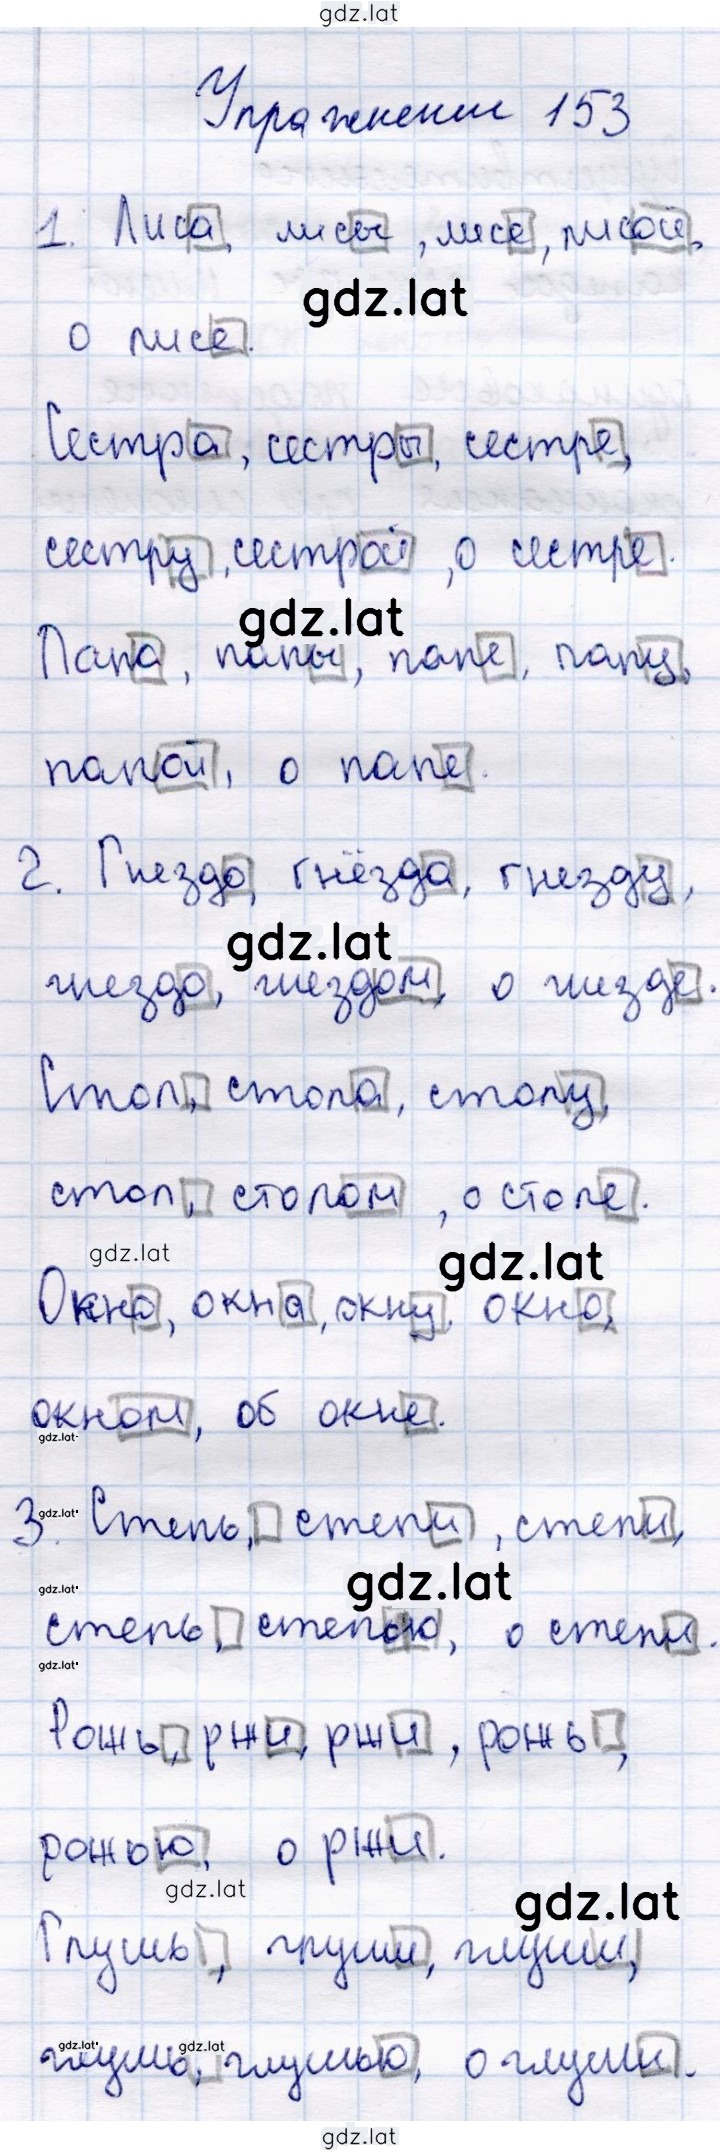 gdz.lat
Упражнение 153
1. Лиса, лисы, лисе, лисой,
gdz.lat
о лисе.
Сестра, сестры, сестре,
сестру, сестрой, о сестре.
gdz.lat
Папа, папы, папе, папу,
папой, о папе.
2. Гнездо, гнёзда, гнезду,
gdz.lat
гнездо, гнездом, о гнезде.
Стол, стола, столу,
стол, столом, о столе.
gdz.lat gdz.lat
Окно, окна, окну, окно,
окном, об окне.
gdz.lat
gdz.lat
3. Степь, степи, степи,
gdz.lat gdz.lat
степь, степью, о степи.
gdz.lat
Рожь, ржи, ржи, рожь,
рожью, о ржи.
gdz.lat gdz.lat
Глушь, глуши, глуши,
gdz.lat gdz.lat
глушь, глушью, о глуши.
gdz.lat